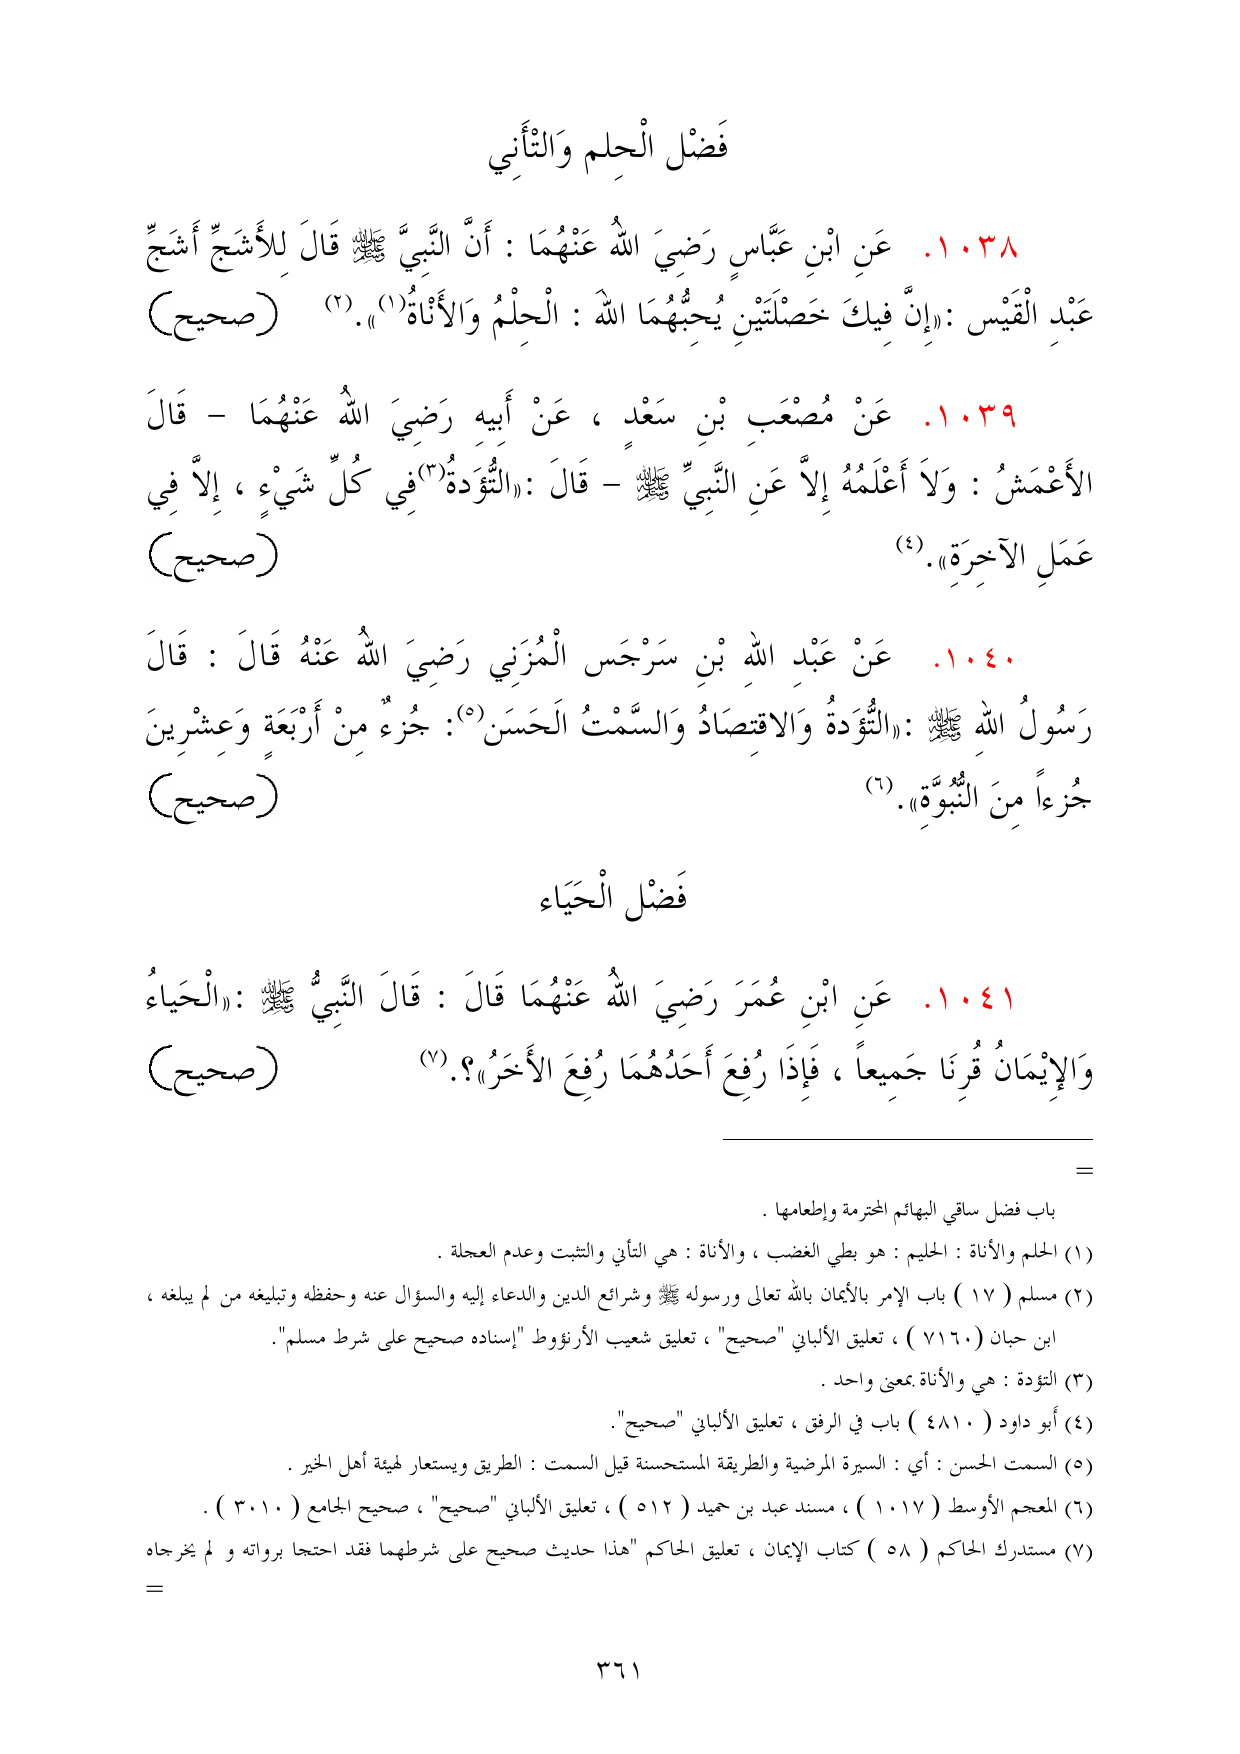 فَضْل الْحِلم وَالتْأَنِي
١٠٣٨. عَنِ ابْنِ عَبَّاسٍ رَضِيَ اللهُ عَنْهُمَا : أَنَّ النَّبِيَّ ﷺ قَالَ لِلأَشَجِّ أَشَجِّ
عَبْدِ الْقَيْس :«إِنَّ فِيكَ خَصْلَتَيْنِ يُحِبُّهُمَا اللهَ : الْحِلْمُ وَالأَنْاةُ(١)».(٢) (صحيح)
١٠٣٩. عَنْ مُصْعَبِ بْنِ سَعْدٍ ، عَنْ أَبِيهِ رَضِيَ اللهُ عَنْهُمَا – قَالَ
الأَعْمَشُ : وَلاَ أَعْلَمُهُ إِلاَّ عَنِ النَّبِيِّ ﷺ – قَالَ :«التُّؤَدةُ(٣)فِي كُلِّ شَيْءٍ ، إِلاَّ فِي
عَمَلِ الآخِرَةِ».(٤) (صحيح)
١٠٤٠. عَنْ عَبْدِ اللهِ بْنِ سَرْجَس الْمُزَنِي رَضِيَ اللهُ عَنْهُ قَالَ : قَالَ
رَسُولُ اللهِ ﷺ :«التُّؤَدةُ وَالاقتِصَادُ وَالسَّمْتُ الَحَسَن(٥): جُزءٌ مِنْ أَرْبَعَةٍ وَعِشْرِينَ
جُزءاً مِنَ النُّبُوَّةِ».(٦) (صحيح)
فَضْل الْحَيَاء
١٠٤١. عَنِ ابْنِ عُمَرَ رَضِيَ اللهُ عَنْهُمَا قَالَ : قَالَ النَّبِيُّ ﷺ :«الْحَياءُ
وَالإِيْمَانُ قُرِنَا جَمِيعاً ، فَإِذَا رُفِعَ أَحَدُهُمَا رُفِعَ الأَخَرُ»؟.(٧) (صحيح)
=
باب فضل ساقي البهائم المحترمة وإطعامها .
(١) الحلم والأناة : الحليم : هو بطي الغضب ، والأناة : هي التأني والتثبت وعدم العجلة .
(٢) مسلم ( ١٧ ) باب الإمر بالأيمان بالله تعالى ورسوله ﷺ وشرائع الدين والدعاء إليه والسؤال عنه وحفظه وتبليغه من لم يبلغه ،
ابن حبان (٧١٦٠ ) ، تعليق الألباني "صحيح" ، تعليق شعيب الأرنؤوط "إسناده صحيح على شرط مسلم".
(٣) التؤدة : هي والأناة بمعنى واحد .
(٤) أَبو داود ( ٤٨١٠ ) باب في الرفق ، تعليق الألباني "صحيح".
(٥) السمت الحسن : أي : السيرة المرضية والطريقة المستحسنة قيل السمت : الطريق ويستعار لهيئة أهل الخير .
(٦) المعجم الأوسط ( ١٠١٧ ) ، مسند عبد بن حميد ( ٥١٢ ) ، تعليق الألباني "صحيح" ، صحيح الجامع ( ٣٠١٠ ) .
(٧) مستدرك الحاكم ( ٥٨ ) كتاب الإيمان ، تعليق الحاكم "هذا حديث صحيح على شرطهما فقد احتجا برواته و لم يخرجاه
=
٣٦١